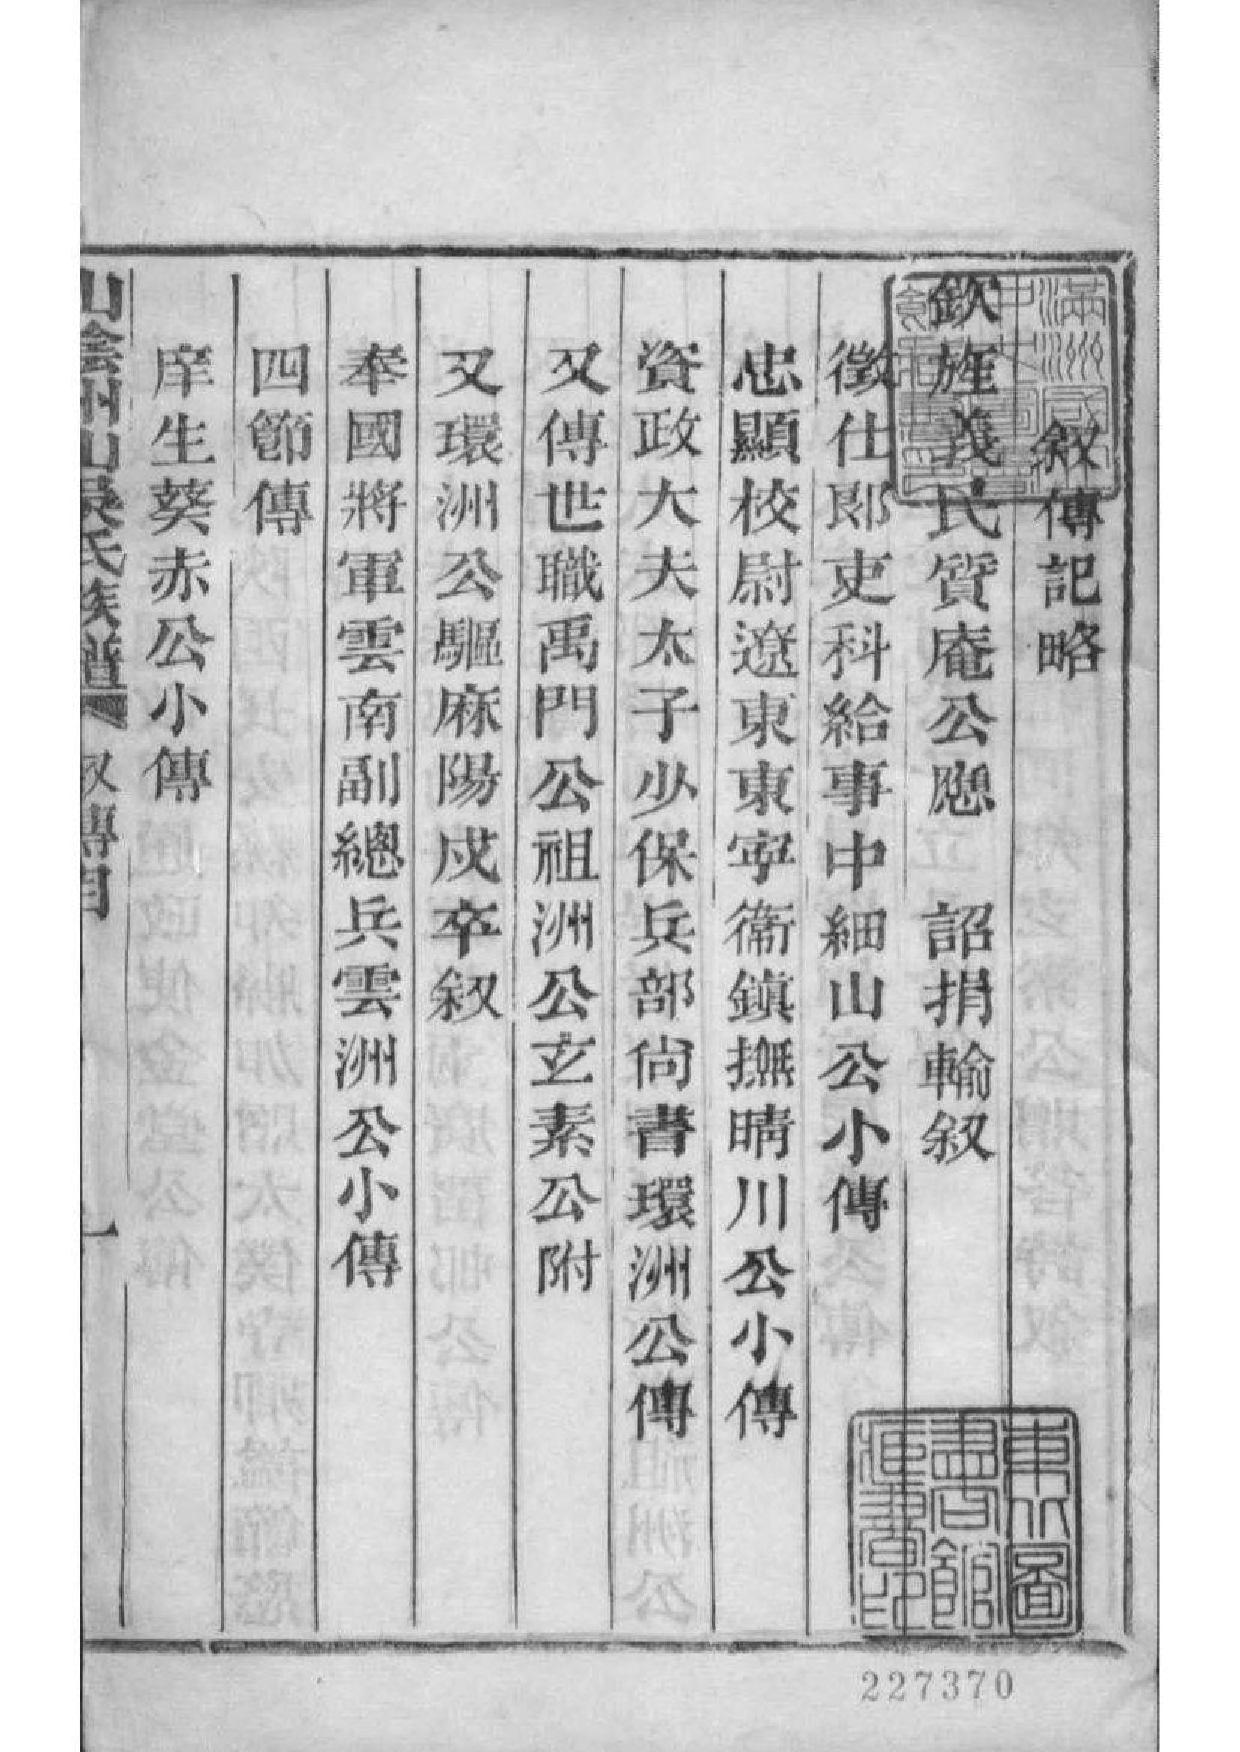 敘傳記略
欽旌義民質庵公應　詔捐輸叙
徵仕郎吏科給事中細山公小傳
忠顯校尉遼東東寧衛鎮撫晴川公小傳
資政大夫太子少保兵部尚書環洲公傳
又傳世職禹門公祖洲公玄素公附
又環洲公驅麻陽戍卒叙
奉國將軍雲南副總兵雲洲公小傳
四節傳
庠生葵赤公小傳
山陰州山吳氏族譜 叙傳目 一
東北圖書館所藏善本
227370